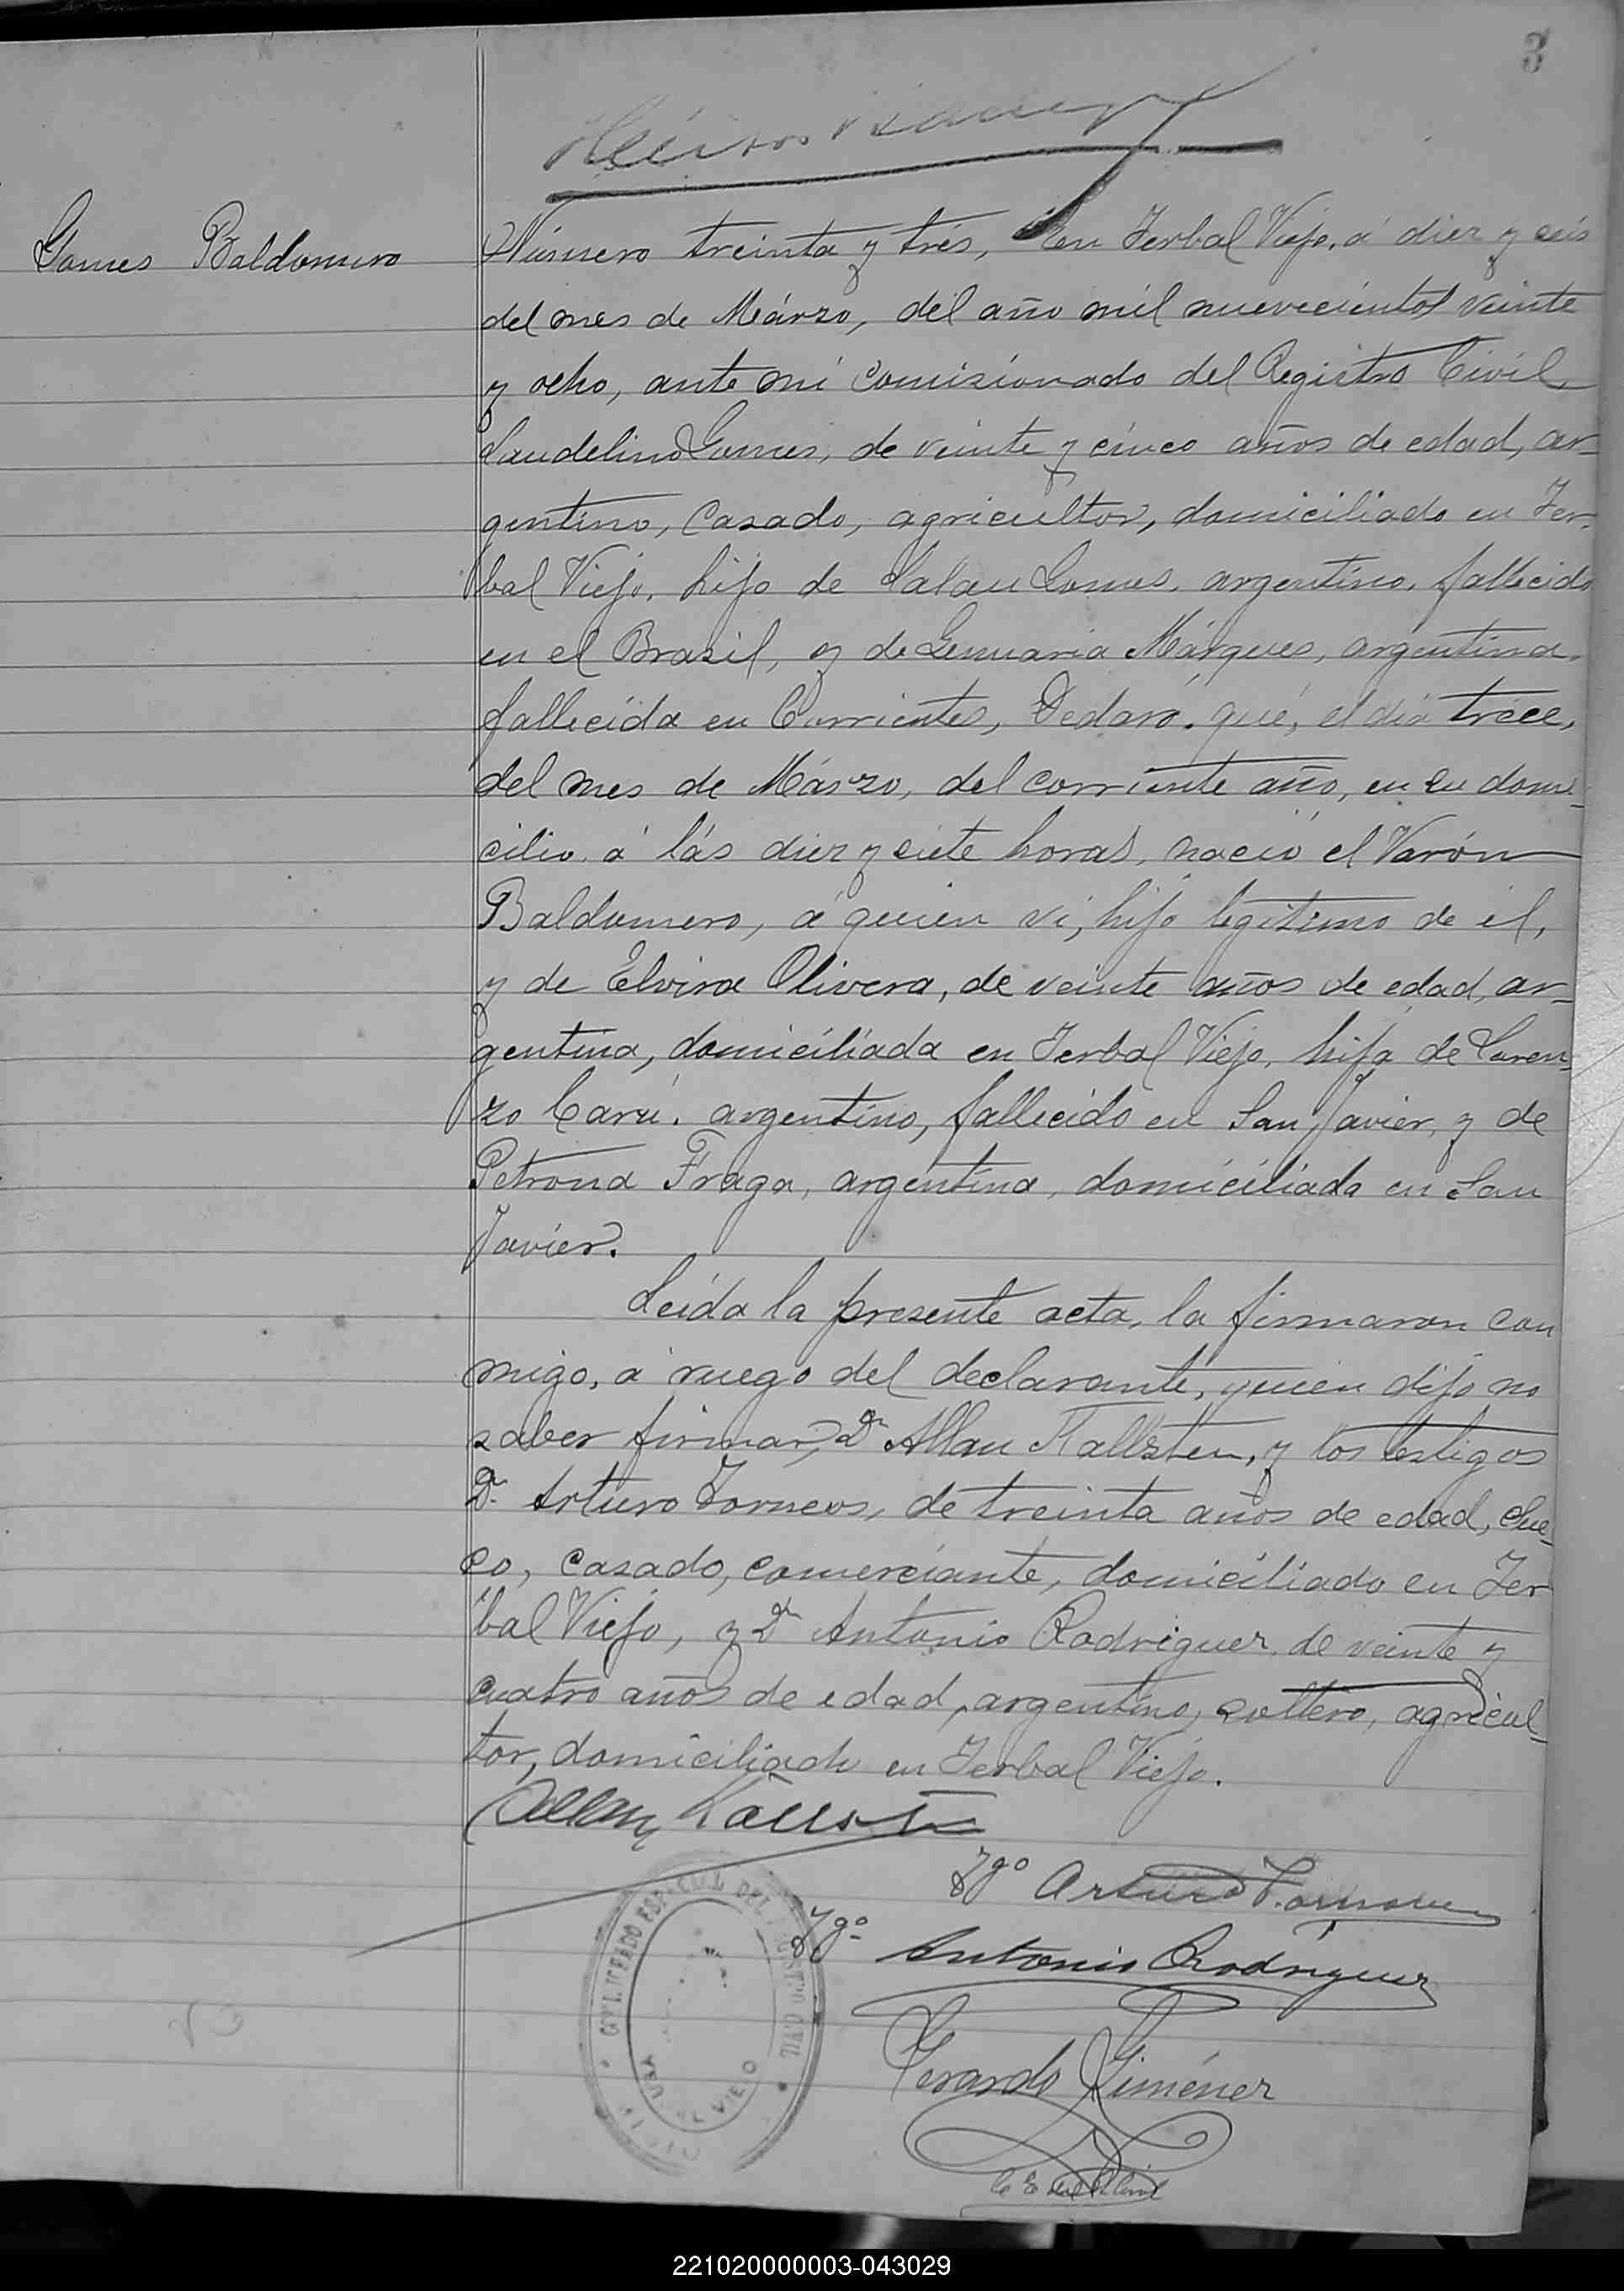 3
Gomes Baldomero
Número treinta y trés, en Jerbal Viejo, á diez y seis
del mes de Márzo, del año mil nuevecientos veinte
y ocho, ante mi comisionado del Registro Civil,
Laudelino Gomes, de veinte y cinco años de edad, ar-
gentino, casado, agricultor, domiciliado en Jer-
bal Viejo, hijo de Gomes, argentino, fallecido
en el Brasil, y de Genuaria Márques, argentina,
fallecida en Corrientes, Declaró: qué, el día tréce,
del mes de Márzo, del corriente año, en su domi-
cilio, á lás diez y siete horas, nació el Varón
Baldomero, á quien ví, hijo legítimo de él,
y de Elvira Olivera, de veinte años de edad, ar-
gentina, domiciliada en Jerbal Viejo, hija de Loren-
zo Carú, argentino, fallecido en San Javier, y de
Petrona Fraga, argentina, domiciliada en San
Javier.
Leída la presente acta, la firmaron con
migo, á ruego del declarante, quien dijo no
saber firmar, Dn Allan Kallsten, y los testigos
Dn. Arturo Forneus, de treinta años de edad, Sue-
co, casado, comerciante, domiciliado en Jer
bal Viejo, y Dn Antonio Rodriguez, de veinte y
cuatro años de edad, argentino, soltero, agricul-
tor, domiciliado en Jerbal Viejo.
Allan Kallsten
Tgo Arturo Forneus
Tgo. Antonio Rodriguez
REGISTRO CIVIL
VIEJO
Gerardo Giménez
C E del R Civil
221020000003-043029